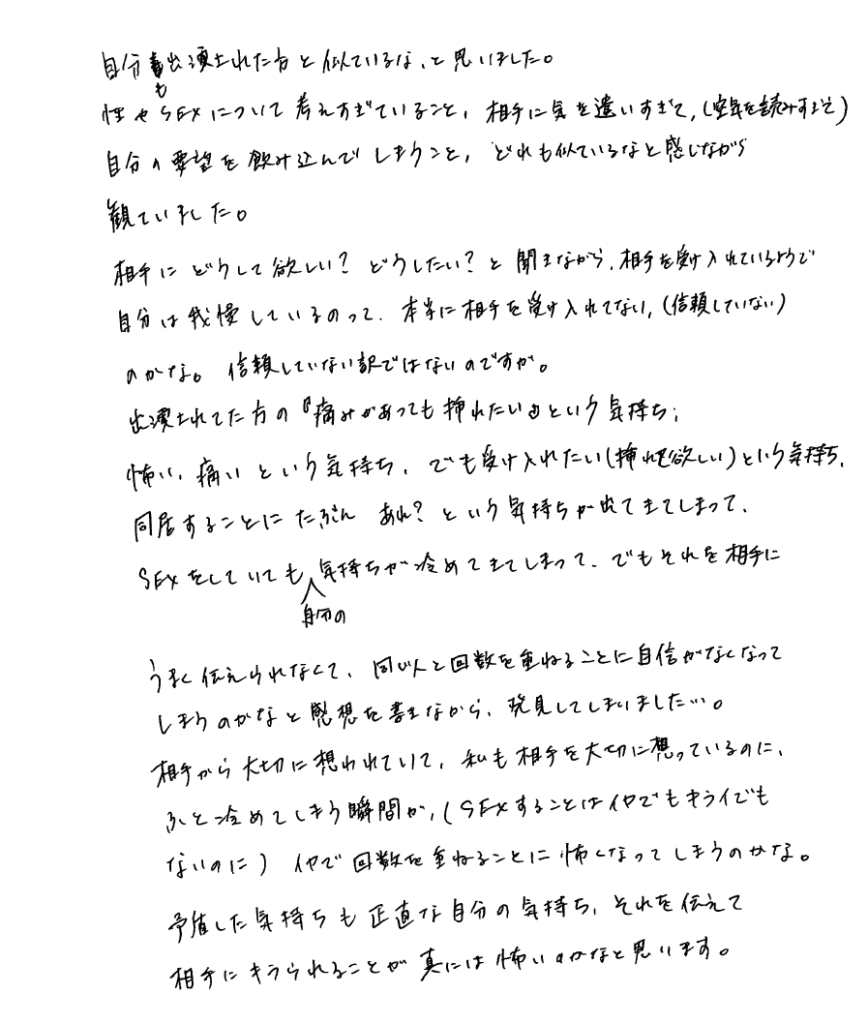 自分も出演された方と似ているな、と思いました。
性やSEXについて考えすぎていること、相手に気を遣いすぎて、(空気を読みすぎて)
自分の要望を飲み込んでしまうこと、どれも似ているなと感じながら
観ていました。
相手にどうして欲しい？どうしたい？と聞きながら、相手を受け入れているようで
自分は我慢しているのって、本当に相手を受け入れてない、(信頼していない)
のかな。信頼していない訳ではないのですが。
出演されてた方の『痛みがあっても挿れたい』という気持ち；
怖い、痛いという気持ち、でも受け入れたい(挿れて欲しい)という気持ち、
同居することにたぶん あれ？という気持ちが出てきてしまって、
SEXをしていても自分の気持ちが冷めてきてしまって、でもそれを相手に
うまく伝えられなくて、同じ人と回数を重ねることに自信がなくなって
しまうのかなと感想を書きながら、発見してしまいました…。
相手から大切に想われていて、私も相手を大切に想っているのに、
ふと冷めてしまう瞬間が、(SEXすることはイヤでもキライでも
ないのに) イヤで回数を重ねることに怖くなってしまうのかな。
矛盾した気持ちも正直な自分の気持ち、それを伝えて
相手にキラられることが真には怖いのかなと思います。